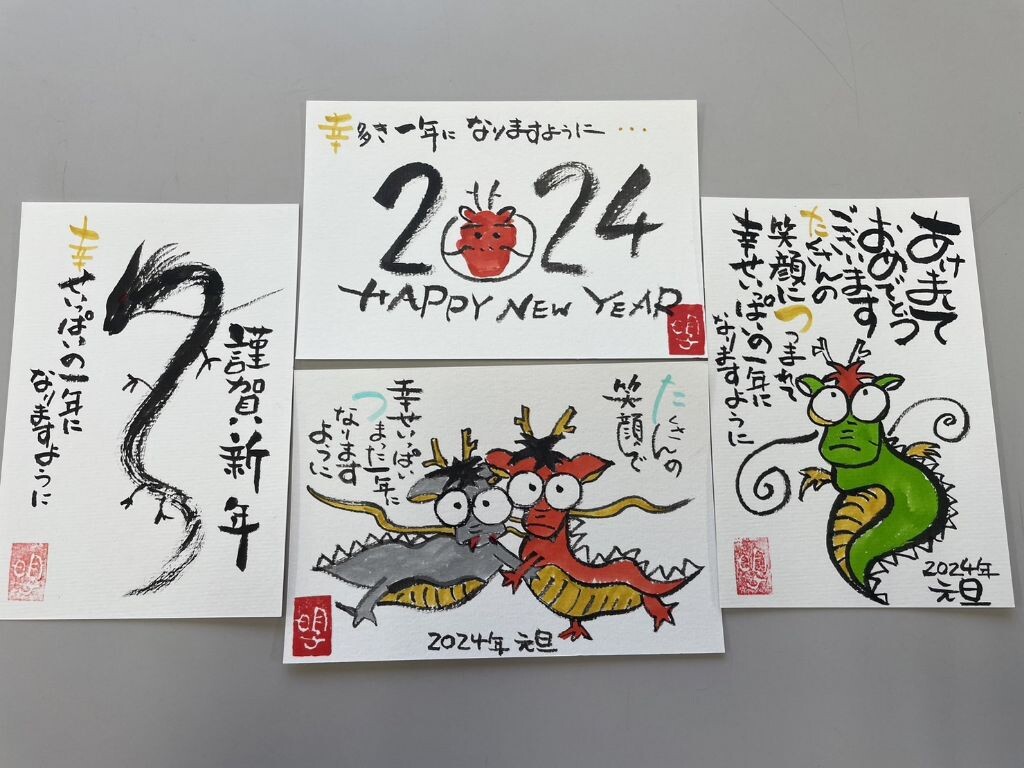 幸せいっぱいの一年に
なりますように
謹賀新年
明
幸多き一年に なりますように…
2024
HAPPY NEW YEAR
明
たくさんの
笑顔で
幸せいっぱい
つまった一年に
なります
ように
2024年 元旦
明
あけまして
おめでとう
ございます
たくさんの
笑顔に つつまれて
幸せいっぱいの一年に
なりますように
2024年
元旦